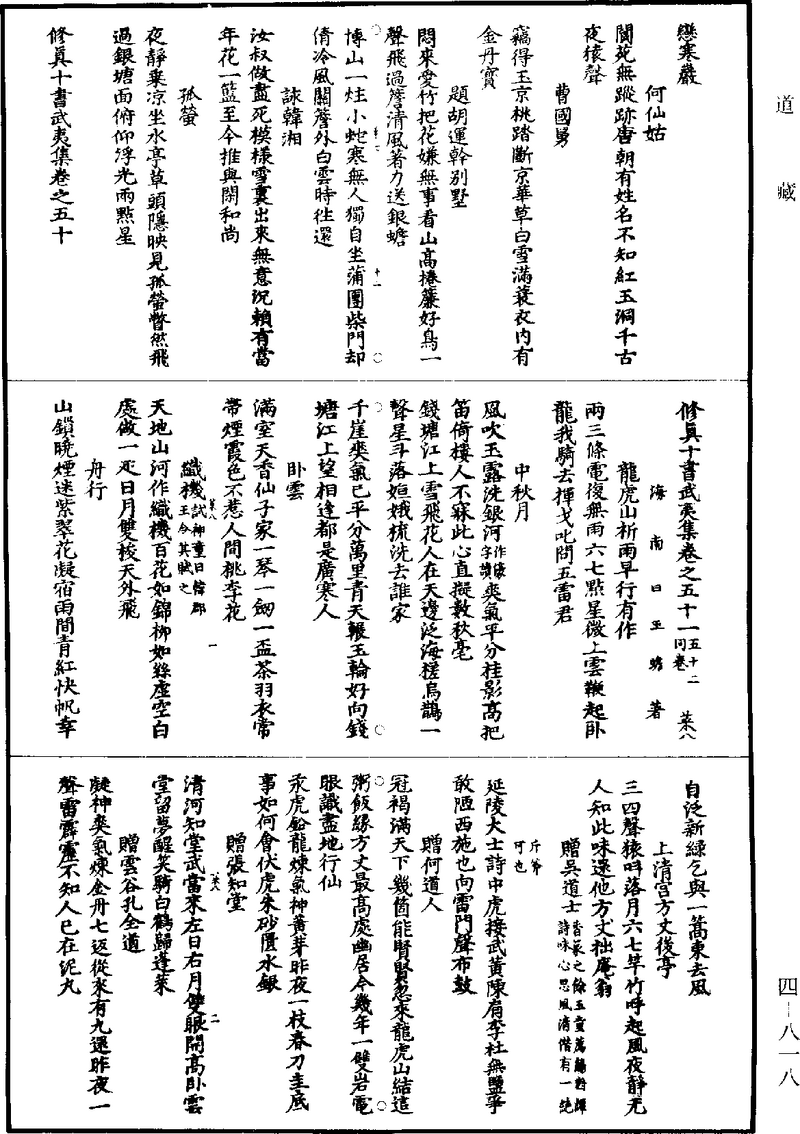 道藏
戀寒巖
何仙姑
閬苑無蹤跡唐朝有姓名不知紅玉洞千古
夜猿聲
曹國舅
竊得玉京桃踏斷京華草白雪滿蓑衣內有
金丹寶
題胡運幹別墅
悶來愛竹把花嫌無事看山高捲簾好鳥一
聲飛過簷清風著力送銀蟾
博山一炷小蛇寒無人獨自坐蒲團柴門却
倩冷風關簷外白雲時往還
十一
詠韓湘
汝叔做盡死模樣雪裏出來無意況賴有當
年花一籃至今推與閑和尚
孤螢
夜靜乘凉坐水亭草頭隱映見孤螢瞥然飛
過銀塘面俯仰浮光兩點星
修真十書武夷集卷之五十
修真十書武夷集卷之五十一五十二同卷 菜八
海南白玉蟾著
龍虎山祈雨早行有作
兩三條電復無雨六七點星微上雲鞭起卧
龍我騎去揮戈叱問五雷君
中秋月
風吹玉露洗銀河作酸字讀爽氣平分桂影高把
笛倚樓人不寐此心直擬數秋毫
錢塘江上雪飛花人在天邊泛海槎烏鵲一
聲星斗落姮娥梳洗去誰家
千崖爽氣已平分萬里青天輾玉輪好向錢
塘江上望相逢都是廣寒人
卧雲
滿室天香仙子家一琴一劒一盃茶羽衣常
帶煙霞色不惹人間桃李花
菜八
一
織機試神童日韓郡王令其賦之
天地山河作織機百花如錦柳如絲虛空白
處做一疋日月雙梭天外飛
舟行
山鎖曉煙迷紫翠花凝宿雨間青紅快帆幸
自泛新綠乞與一蒿東去風
上清宮方丈後亭
三四聲猿呌落月六七竿竹呼起風夜靜无
人知此味還他方丈拙庵翁
贈吳道士
詩味心思風清借有一純
斤第可也
延陵大士詩中虎接武黃陳肩李杜無鹽爭
敢陋西施也向雷門聲布鼓
贈何道人
冠褐滿天下幾箇能賢賢忽來龍虎山結這
粥飯緣方丈最高處幽居今幾年一雙岩電
眼識盡地行仙
汞虎鉛龍煉氣神黃芽昨夜一枝春刀圭底
事如何會伏虎朱砂匱水銀
贈張知堂
菜八
二
清河知堂武當來左日右月雙眼開高卧雲
堂留夢醒笑騎白鶴歸蓬萊
贈雲谷孔全道
凝神爽氣煉金丹七返從來有九還昨夜一
聲雷霹靂不知人已在泥丸
四—八一八